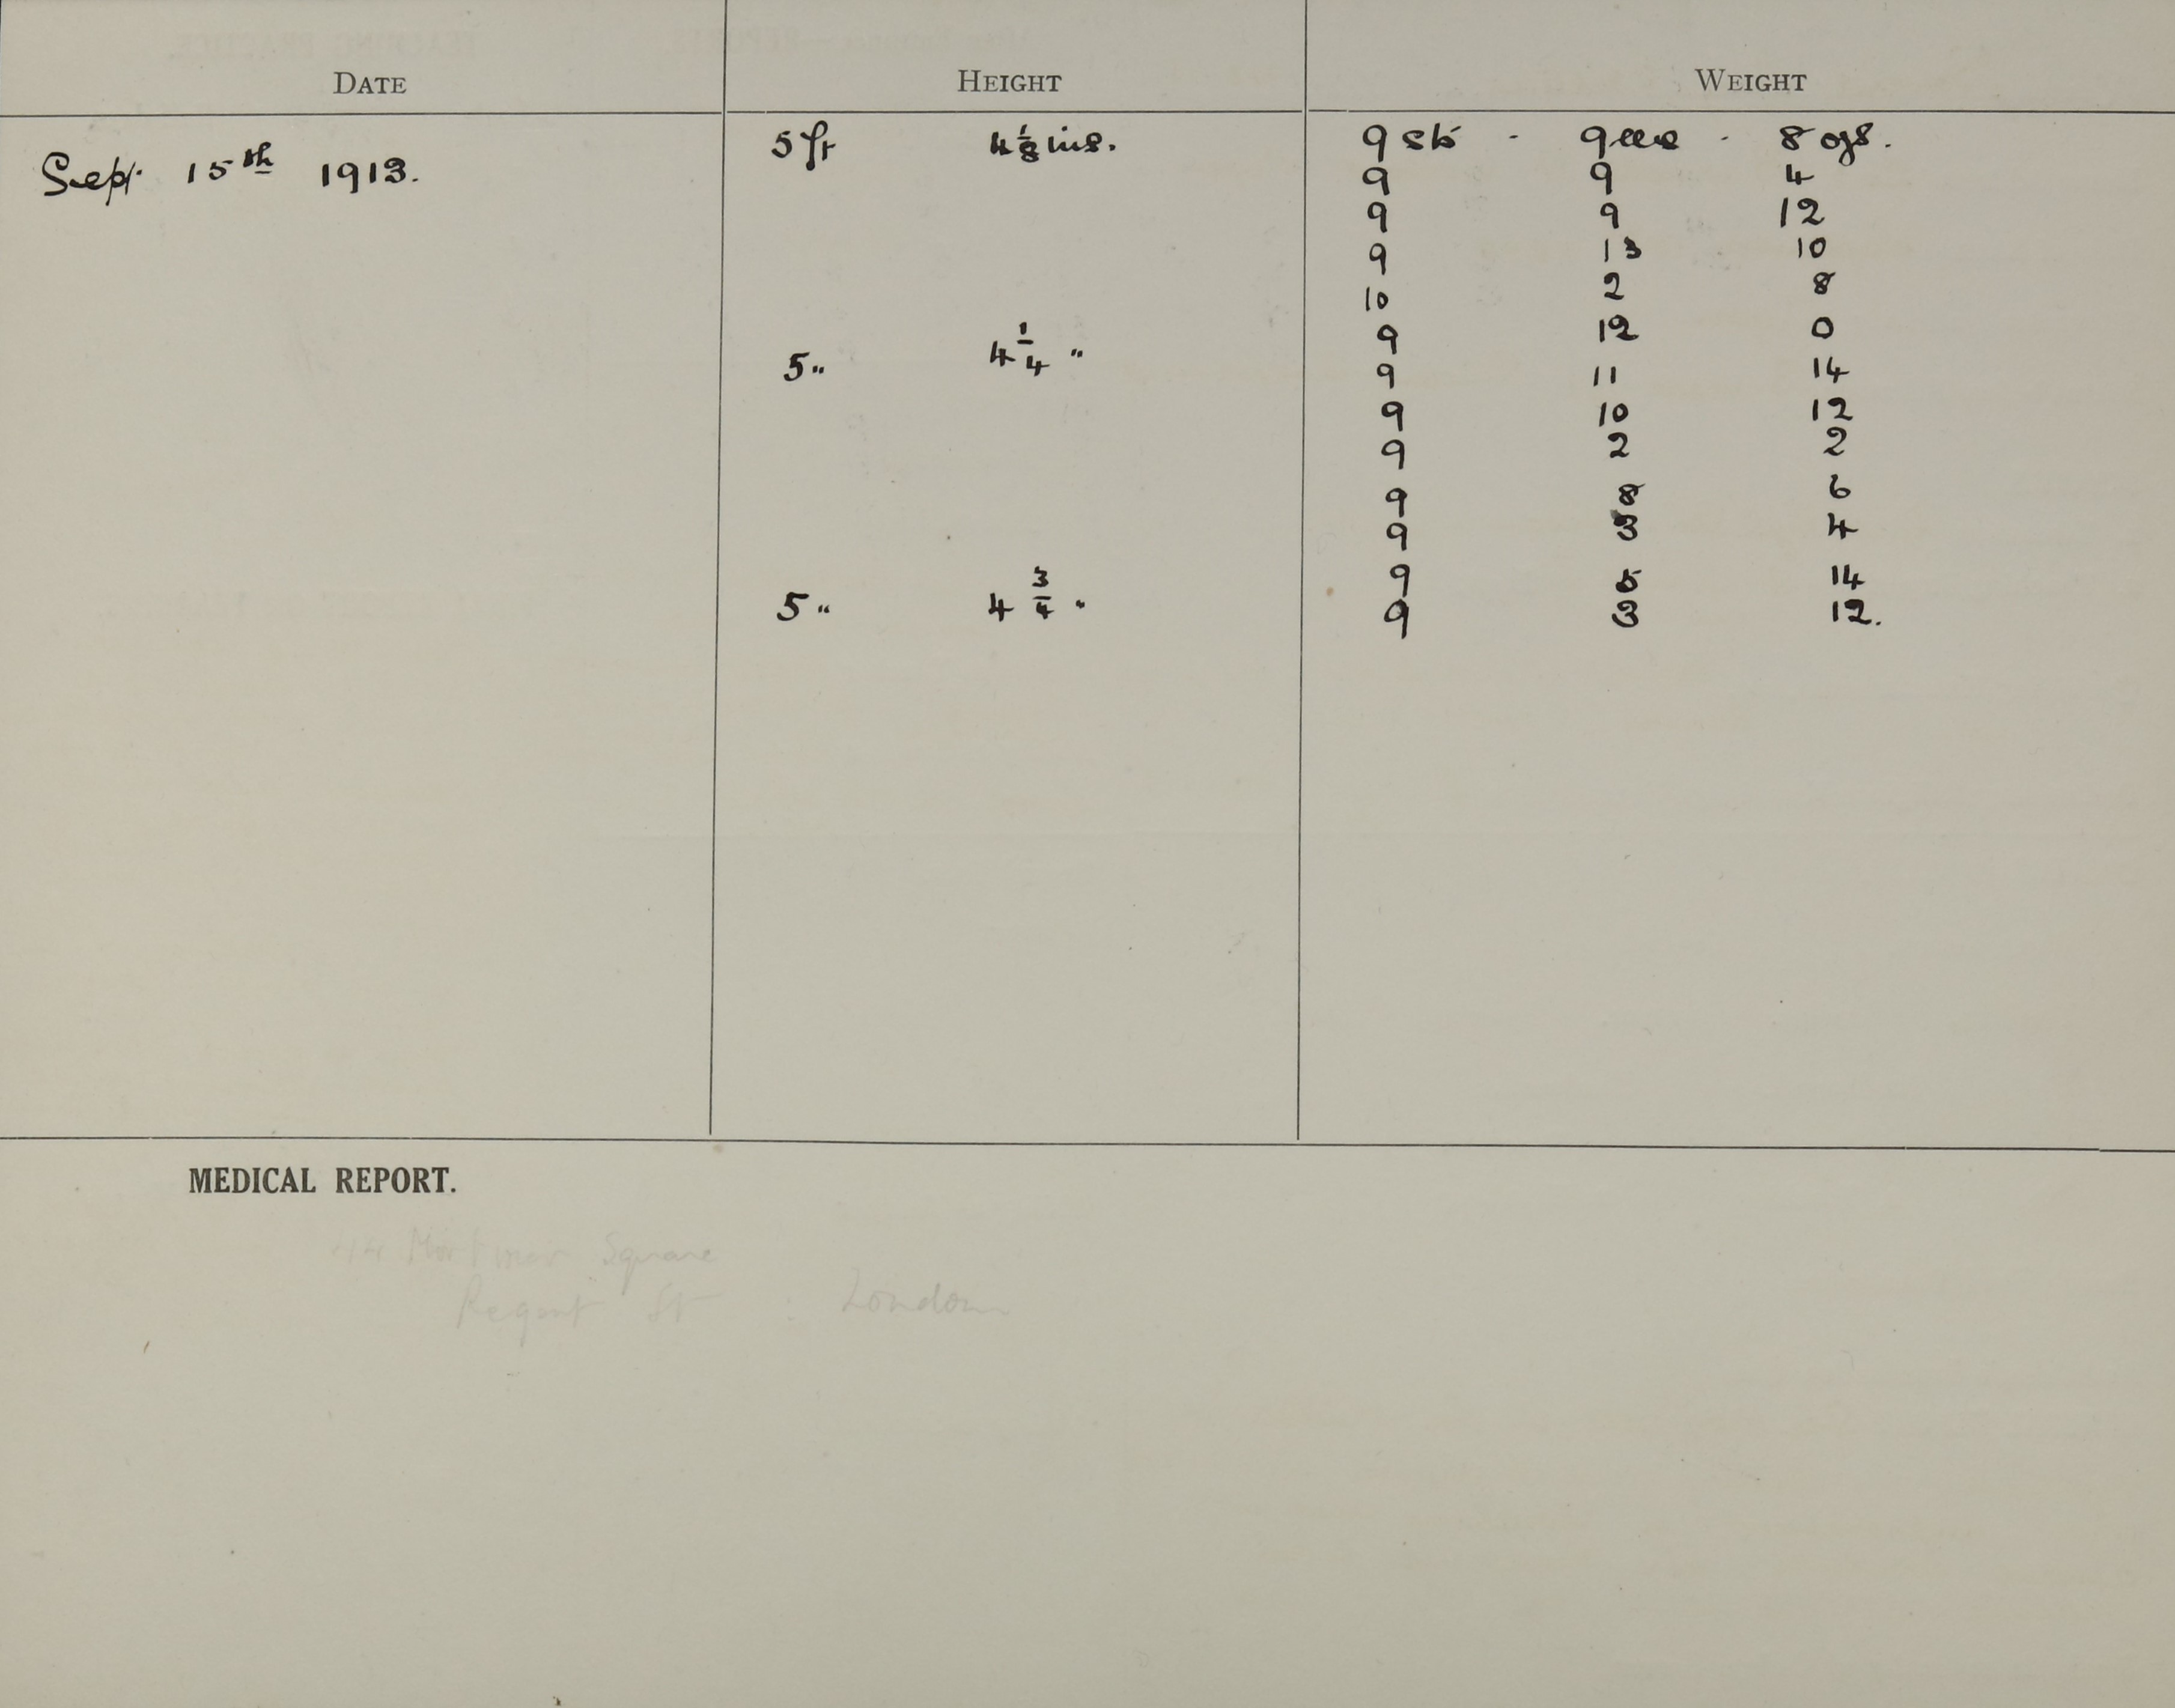 DATE HEIGHT WEIGHT
Sept. 15th 1913. 5 ft 4 1/8 ins. 9 st - 9 lbs - 8 ozs.
9 9 4
9 9 12
9 13 10
10 2 8
9 12 0
5 " 4 1/4 " 9 11 14
9 10 12
9 2 2
9 8 6
9 3 4
9 5 14
5 " 4 3/4 " 9 3 12.
MEDICAL REPORT.
Square
Regent St : London